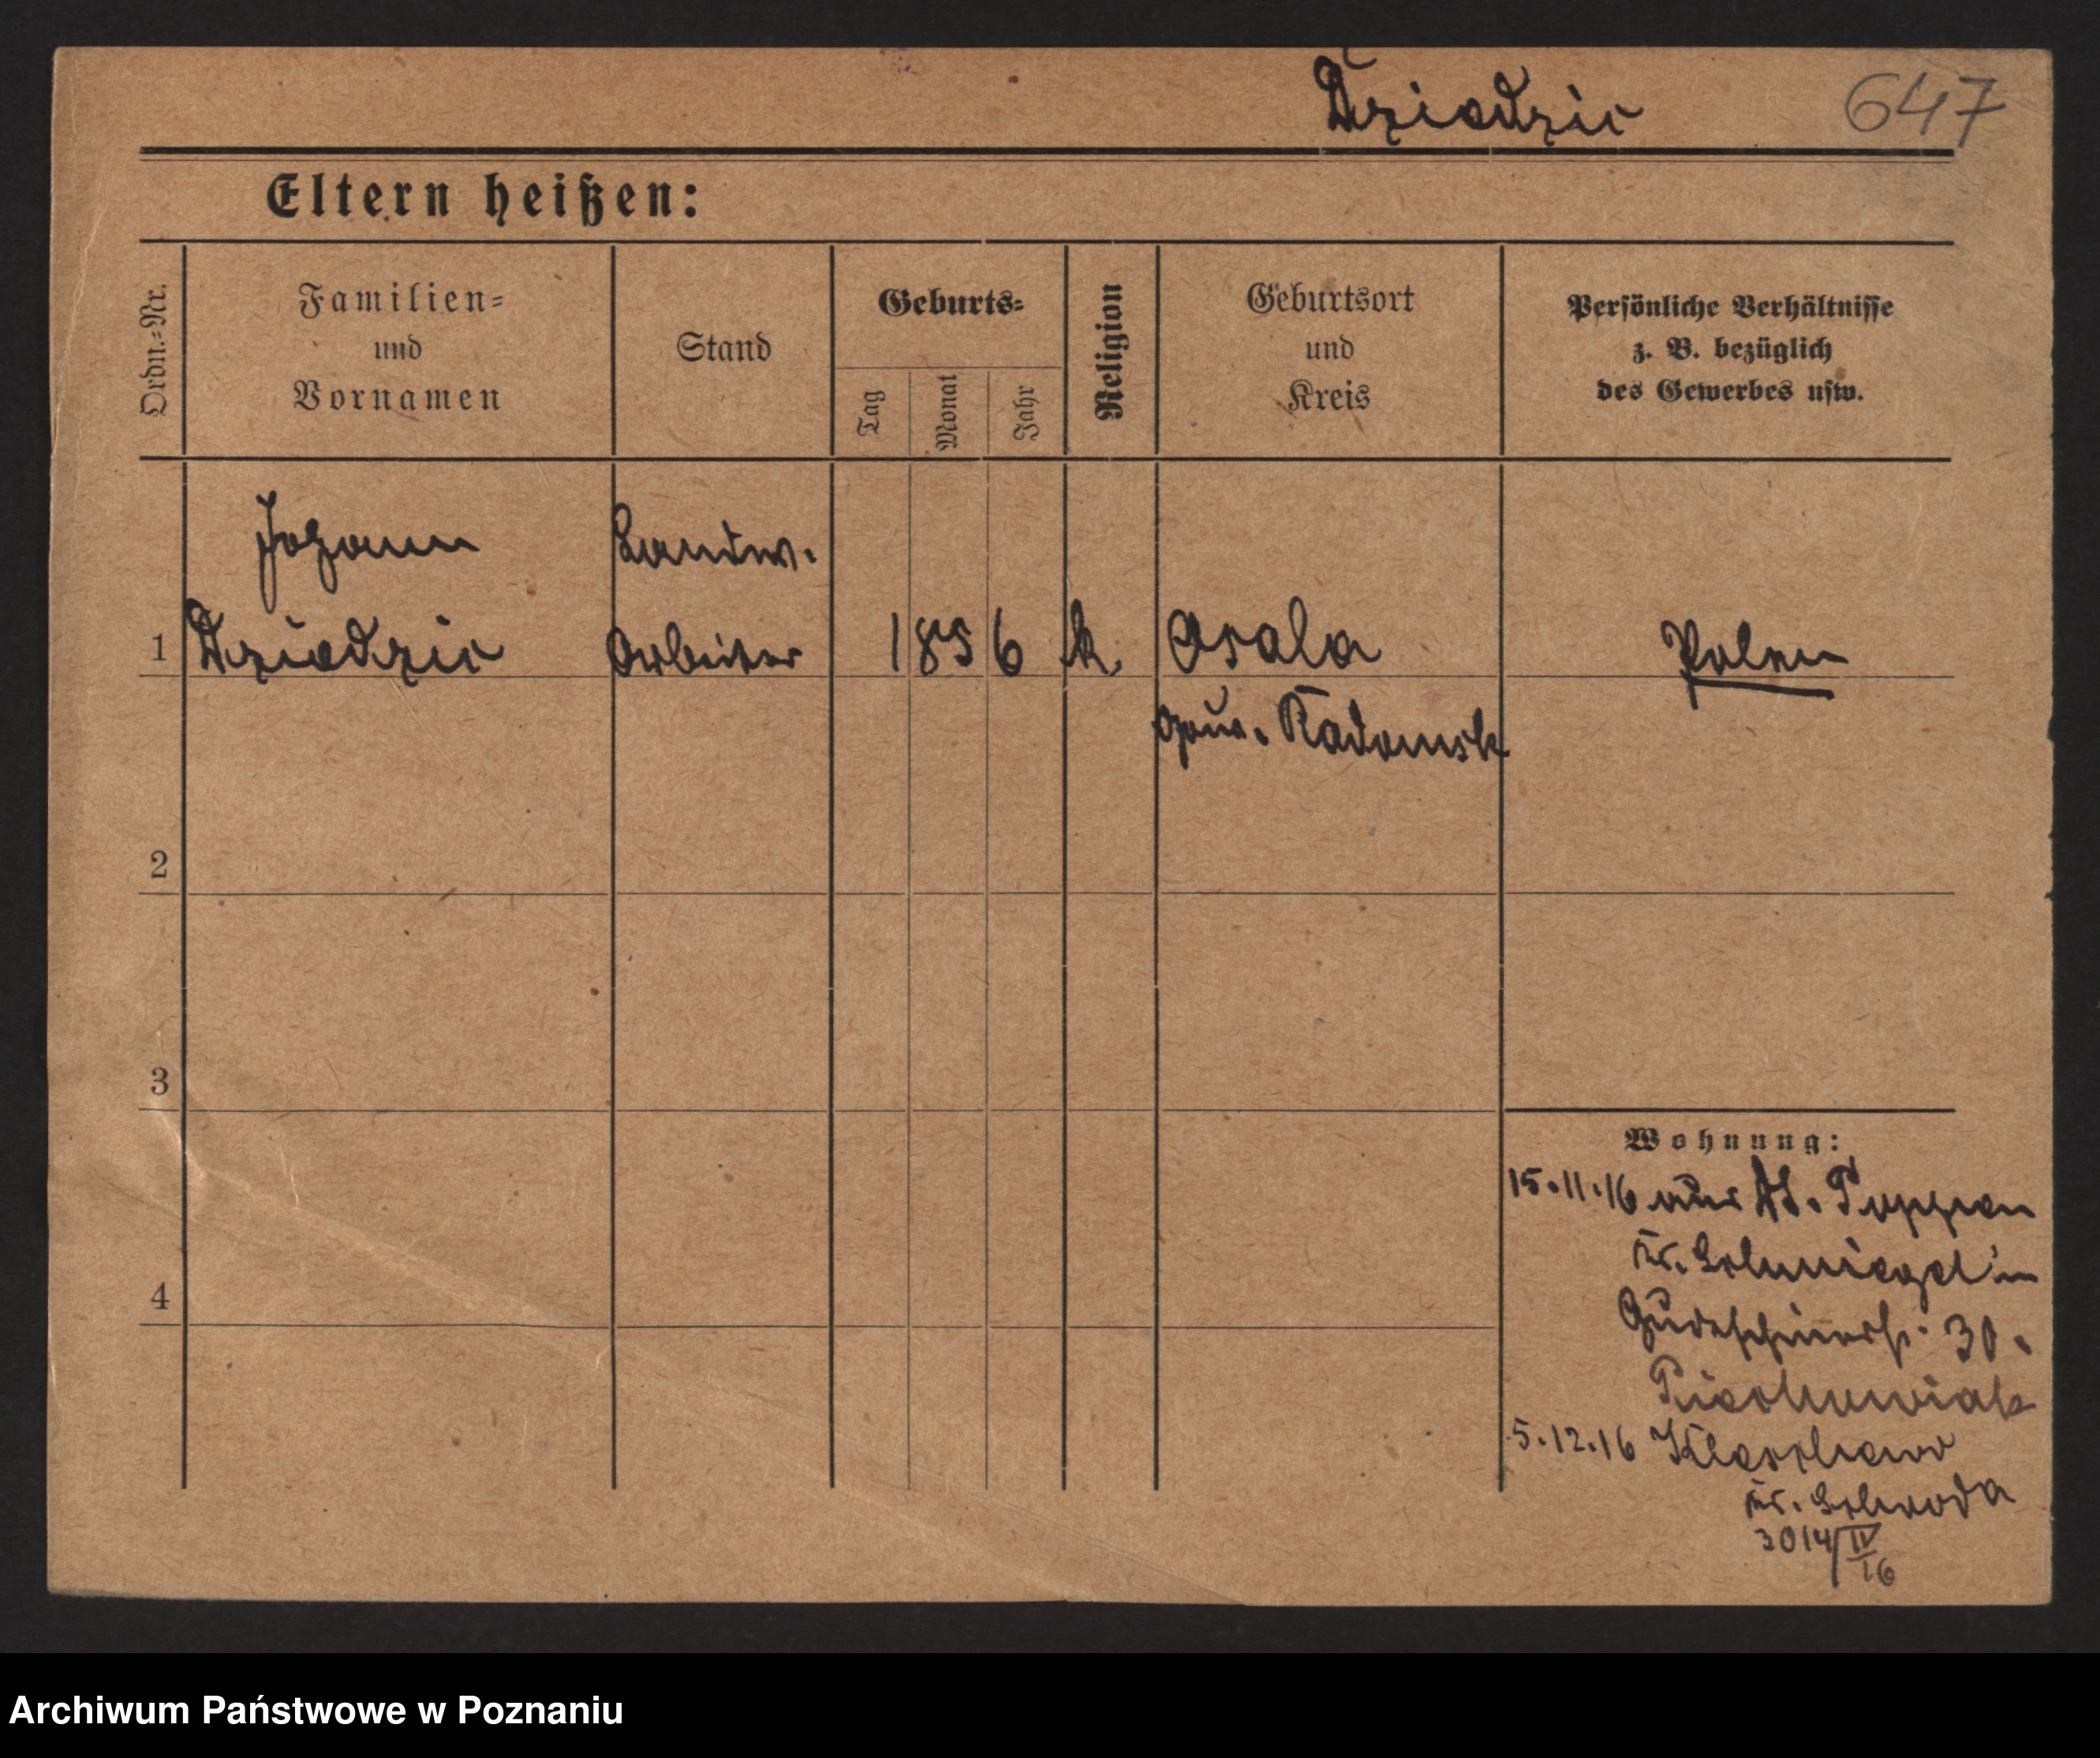 Dziedzic 647
Eltern heißen:
Ordn.=Nr.
Familien=
und
Vornamen
Stand
Geburts=
Tag
Monat
Jahr
Religion
Geburtsort
und
Kreis
Persönliche Verhältnisse
z. B. bezüglich
des Gewerbes usw.
Johann Landw.
1 Dziedzic Arbeiter 1856 k. Osala Polen
Gouv. Radomsk
2
3
4
Wohnung:
15.11.16 aus At. Poppen
Kr. Schmiegel in
30.
5.12.16
Kr. Schroda
3014/IV
16
Archiwum Państwowe w Poznaniu